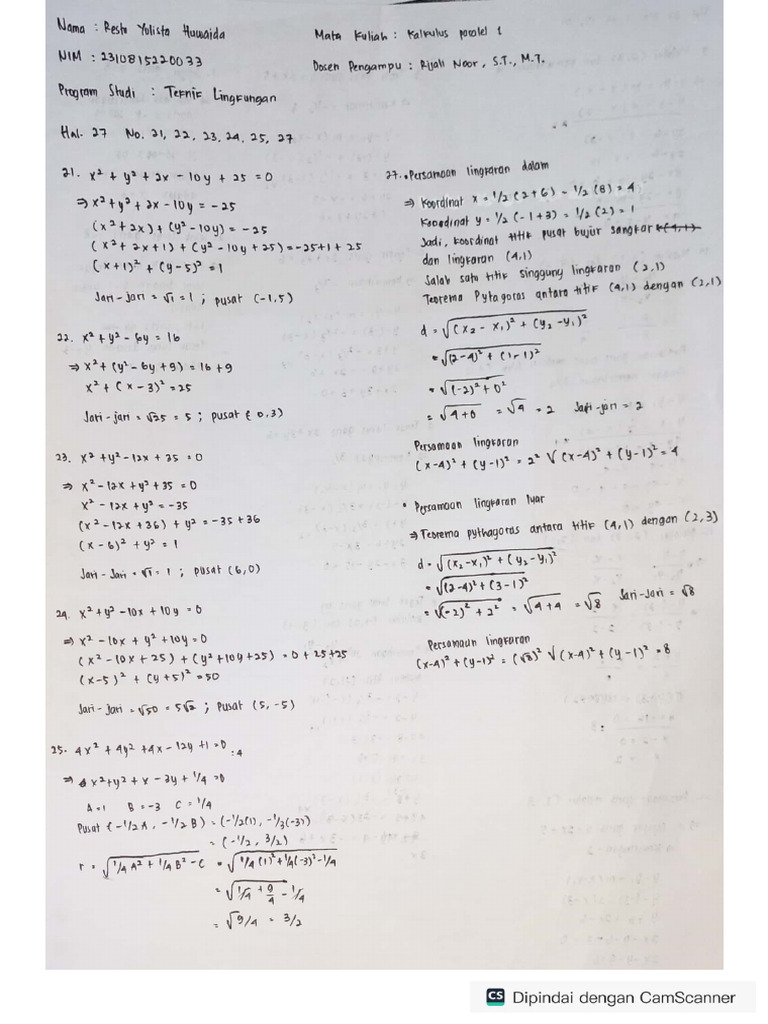 Nama : Resto Yolista Huwaida
NIM : 2310815220033
Program Studi : Teknik Lingkungan
Mata Kuliah : Kalkulus paralel 1
Dosen Pengampu : Rijali Noor, S.T., M.T.
Hal. 27 No. 21, 22, 23, 24, 25, 27
21. x² + y² + 2x - 10y + 25 = 0
⇒ x² + y² + 2x - 10y = -25
(x² + 2x) + (y² - 10y) = -25
(x² + 2x + 1) + (y² - 10y + 25) = -25 + 1 + 25
(x + 1)² + (y - 5)² = 1
Jari-jari = √1 = 1 ; pusat (-1,5)
22. x² + y² - 6y = 16
⇒ x² + (y² - 6y + 9) = 16 + 9
x² + (x - 3)² = 25
Jari-jari = √25 = 5 ; pusat (0,3)
23. x² + y² - 12x + 35 = 0
⇒ x² - 12x + y² + 35 = 0
x² - 12x + y² = -35
(x² - 12x + 36) + y² = -35 + 36
(x - 6)² + y² = 1
Jari-Jari = √1 = 1 ; pusat (6,0)
24. x² + y² - 10x + 10y = 0
⇒ x² - 10x + y² + 10y = 0
(x² - 10x + 25) + (y² + 10y + 25) = 0 + 25 + 25
(x - 5)² + (y + 5)² = 50
Jari-Jari = √50 = 5√2 ; Pusat (5, -5)
25. 4x² + 4y² + 4x - 12y + 1 = 0 : 4
⇒ x² + y² + x - 3y + 1/4 = 0
A = 1 B = -3 C = 1/4
Pusat (-1/2 A, -1/2 B) = (-1/2(1), -1/3(-3))
= (-1/2, 3/2)
r = √(1/4 A² + 1/4 B² - C) = √(1/4 (1)² + 1/4(-3)² - 1/4)
= √(1/4 + 9/4 - 1/4)
= √9/4 = 3/2
27. • Persamaan lingkaran dalam
⇒ Koordinat x = 1/2 (2+6) - 1/2 (8) = 4
Koordinat y = 1/2 (-1+3) = 1/2 (2) = 1
Jadi, koordinat titik pusat bujur sangkar (4,1)
dan lingkaran (4,1)
Salah satu titik singgung lingkaran (2,1)
Teorema Pytagoras antara titik (4,1) dengan (2,1)
d = √((x₂ - x₁)² + (y₂ - y₁)²)
= √((2-4)² + (1-1)²)
= √((-2)² + 0²)
= √(4+0) = √4 = 2 Jari-jari = 2
Persamaan lingkaran
(x-4)² + (y-1)² = 2² √ (x-4)² + (y-1)² = 4
• Persamaan lingkaran luar
⇒ Teorema pythagoras antara titik (4,1) dengan (2,3)
d = √((x₂-x₁)² + (y₂-y₁)²)
= √((2-4)² + (3-1)²)
= √((-2)² + 2²) = √(4+4) = √8 Jari-Jari = √8
Persamaan lingkaran
(x-4)² + (y-1)² = (√8)² √ (x-4)² + (y-1)² = 8
CS Dipindai dengan CamScanner